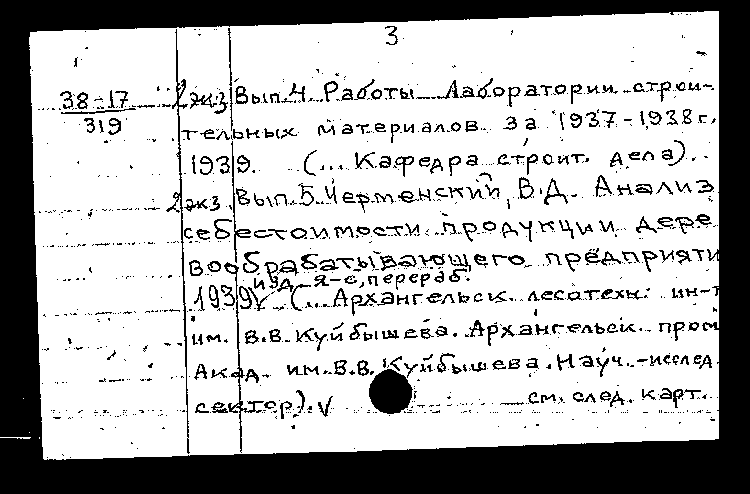 3
38-17 2 экз Вып.4 Работы Лаборатории строи-
319
тельных материалов за 1937-1938 г.
1939. (... Кафедра строит. дела)..
2 экз Вып.5 Черменский, В.Д. Анализ
себестоимости продукции дере
вообрабатывающего предприяти
изд. 2-е, перераб.
1939 V (... Архангельск. лесотехн. ин-т
им. В.В. Куйбышева. Архангельск. пром
Акад. им. В.В. Куйбышева. Науч.-исслед.
сектор). V см. след. карт.